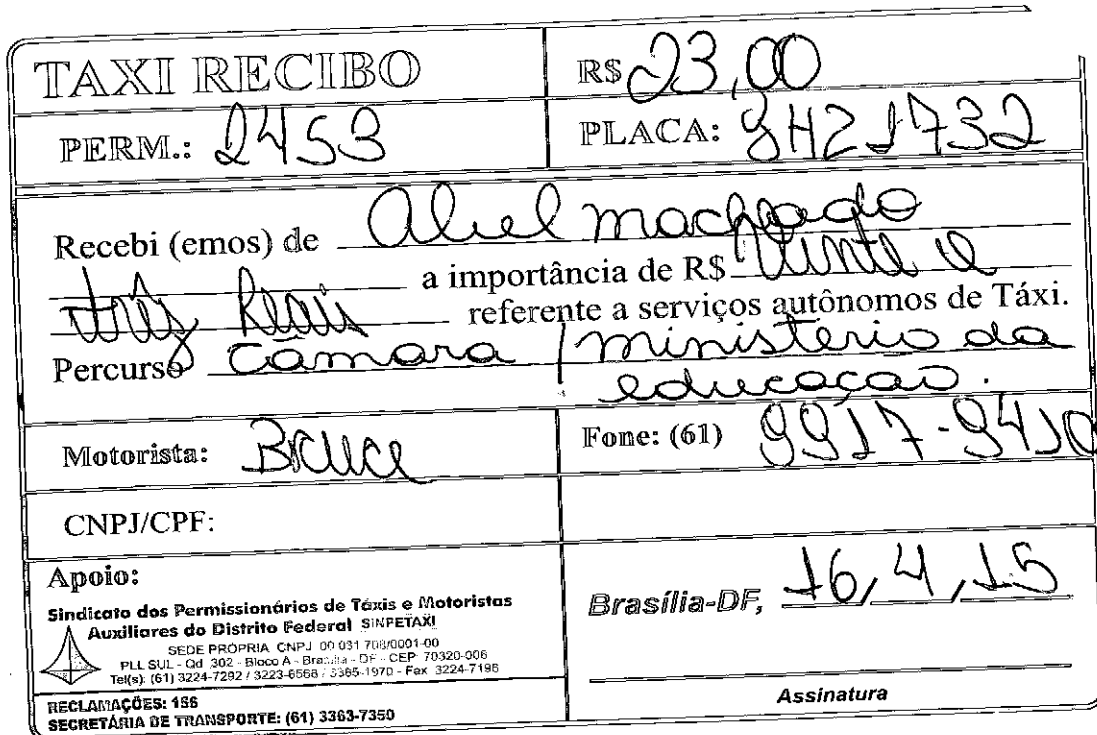 TAXI RECIBO
R$ 23,00
PERM.: 2453
PLACA:
Recebi (emos) de Aliel machado
a importância de R$ Vinte e
três Reais referente a serviços autônomos de Táxi.
Percurso câmara / ministério da
educação.
Motorista: Bruce
Fone: (61) 9917-9410
CNPJ/CPF:
Apoio:
Sindicato dos Permissionários de Táxis e Motoristas
Auxiliares do Distrito Federal SINPETAXI
SEDE PROPRIA CNPJ 00 031 708/0001-00
PLL SUL - Qd 302 - Bloco A - Brasília - DF - CEP 70320-006
Tel(s): (61) 3224-7292 / 3223-6568 / 3365-1970 - Fax 3224-7196
RECLAMAÇÕES: 156
SECRETÁRIA DE TRANSPORTE: (61) 3363-7350
Brasília-DF, 16/4/15
Assinatura